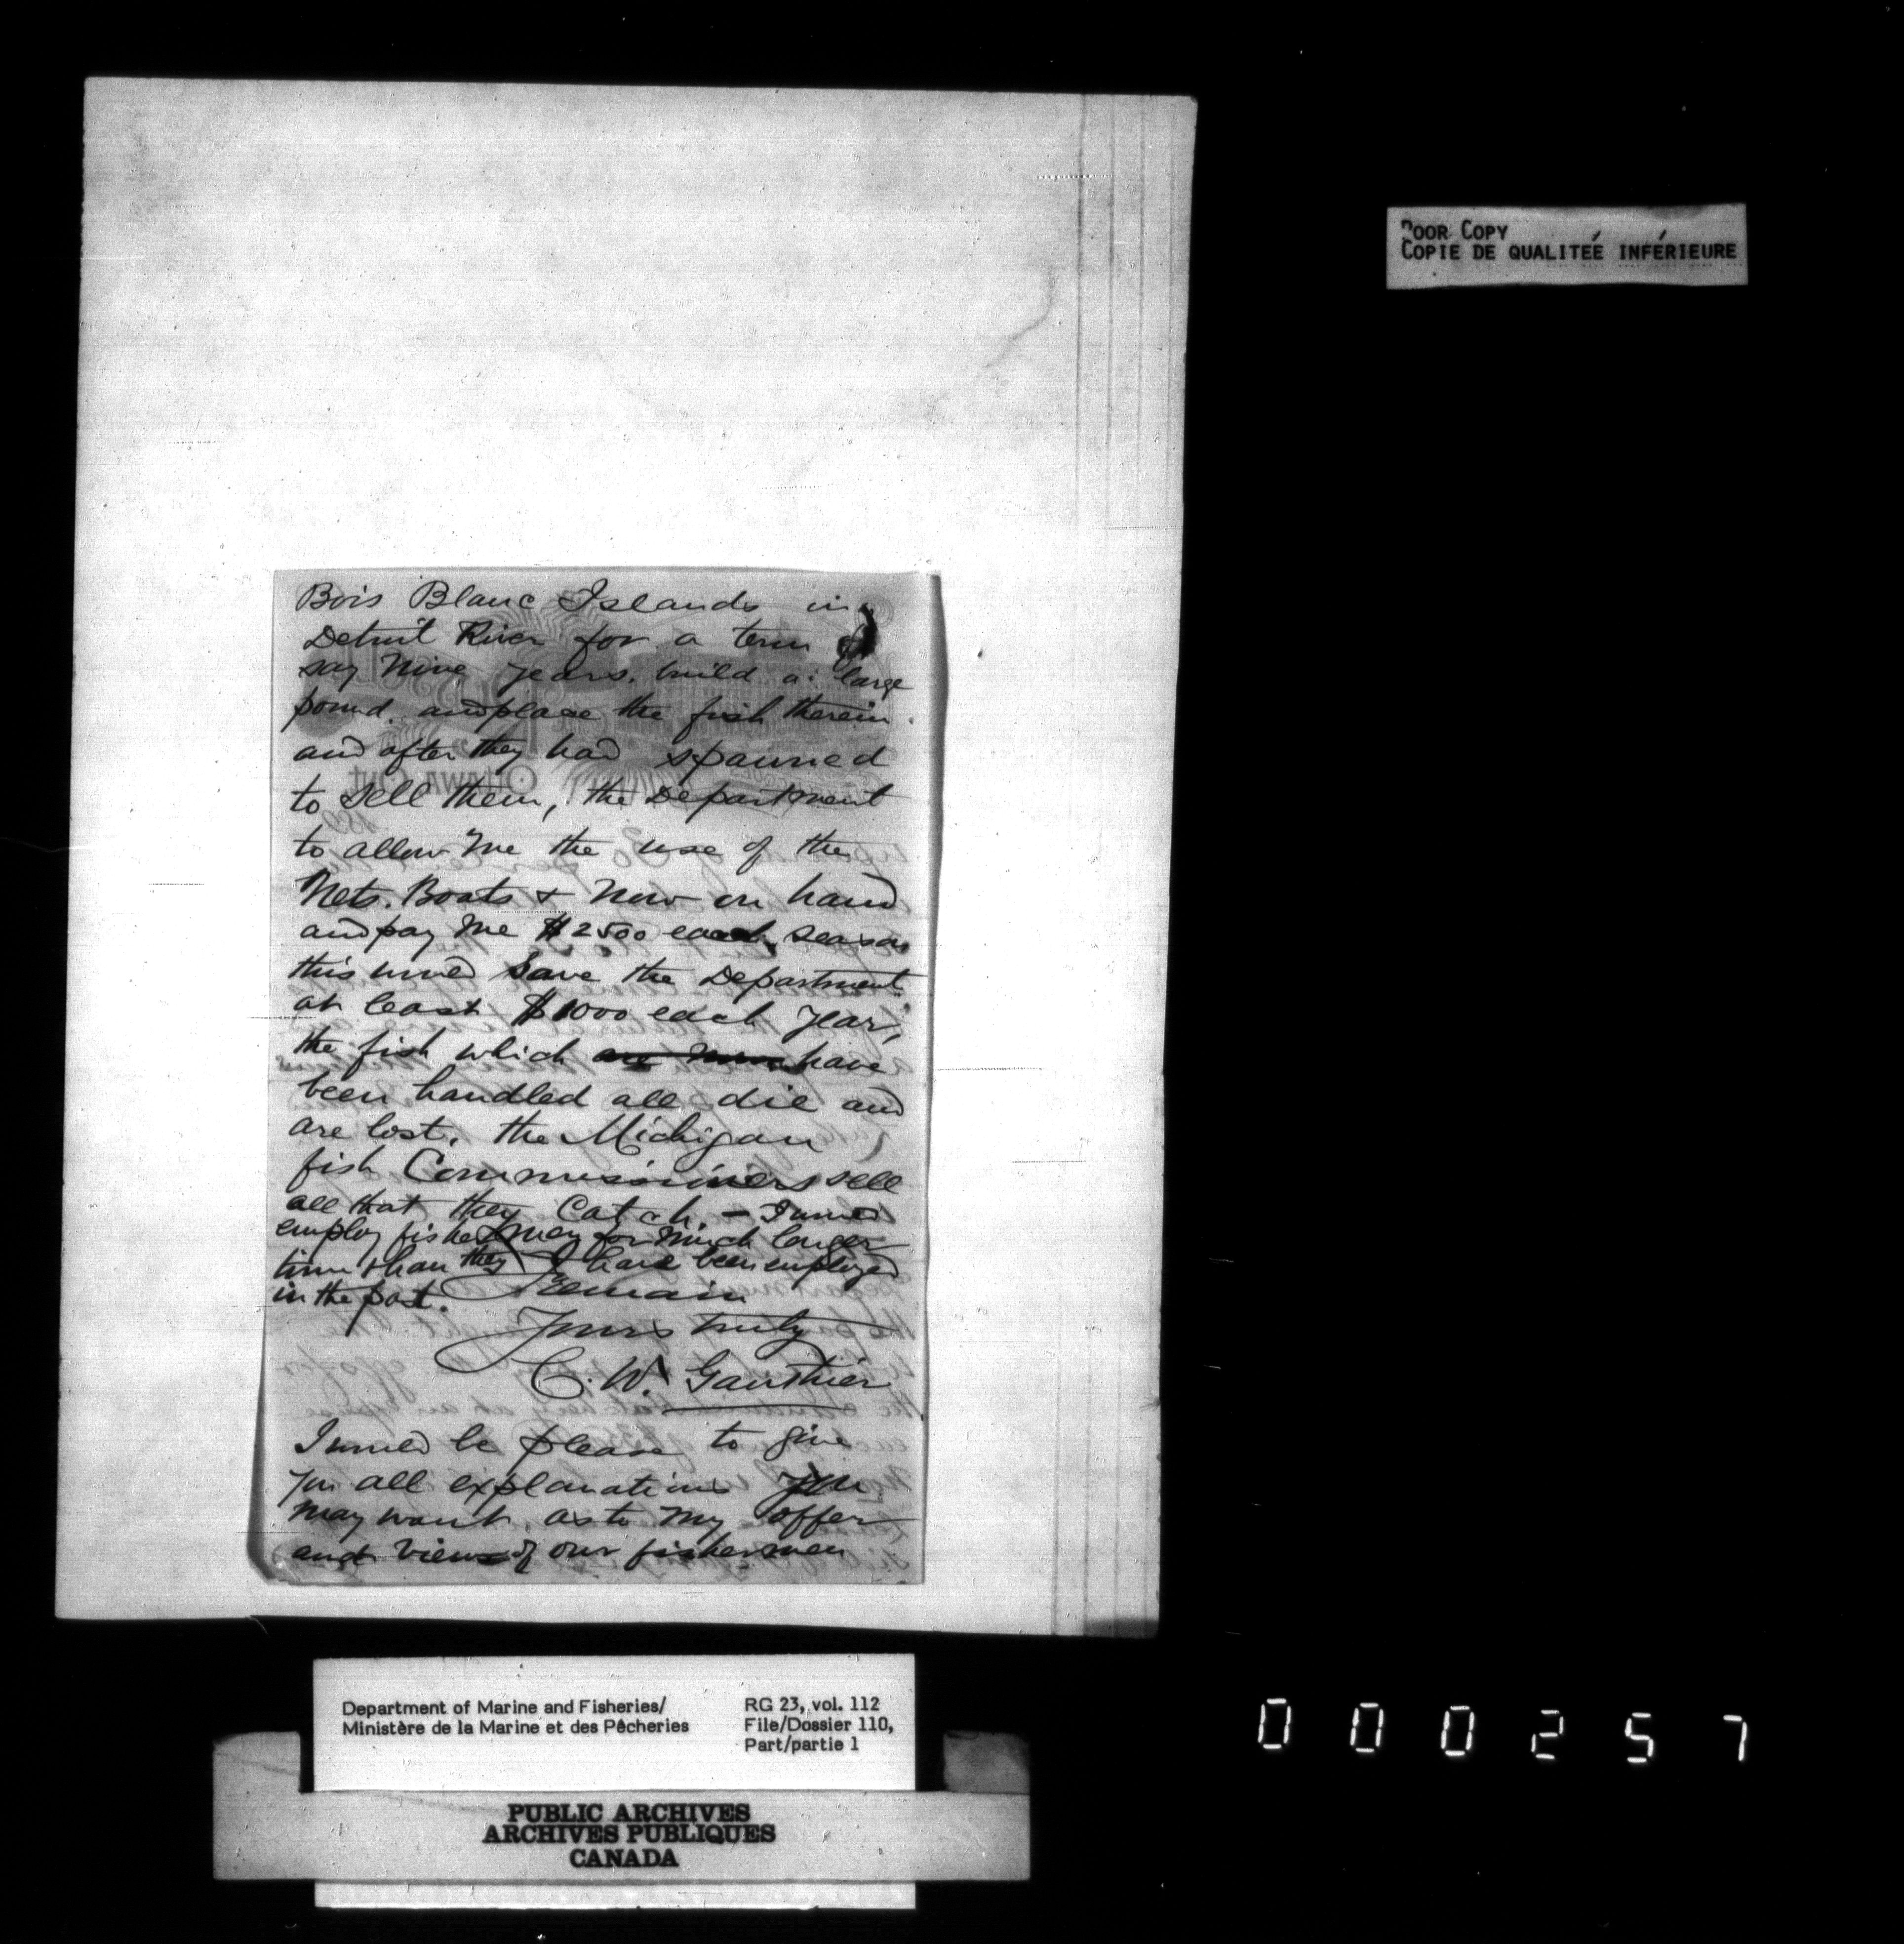 POOR COPY
COPIE DE QUALITÉE INFÉRIEURE
Bois Blanc Islands in
Detroit River for a term of
say Nine years. build a large
pound. and place the fish therein.
and after they had spawned
to sell them, the Department
to allow me the use of the
Nets. Boats & now on hand
and pay me $2500 each season
this would save the Department
at least $1000 each year,
the fish which are now have
been handled all die and
are lost. the Michigan
fish Commissioners sell
all that they Catch. - I would
employ fishermen for much longer
time than they have been employed
in the past. I Remain
Yours truly
C. W. Gauthier
I would be please to give
you all explanations you
may want. as to my offer
and views of our fishermen
Department of Marine and Fisheries/
Ministère de la Marine et des Pêcheries
RG 23, vol. 112
File/Dossier 110,
Part/partie 1
PUBLIC ARCHIVES
ARCHIVES PUBLIQUES
CANADA
000257